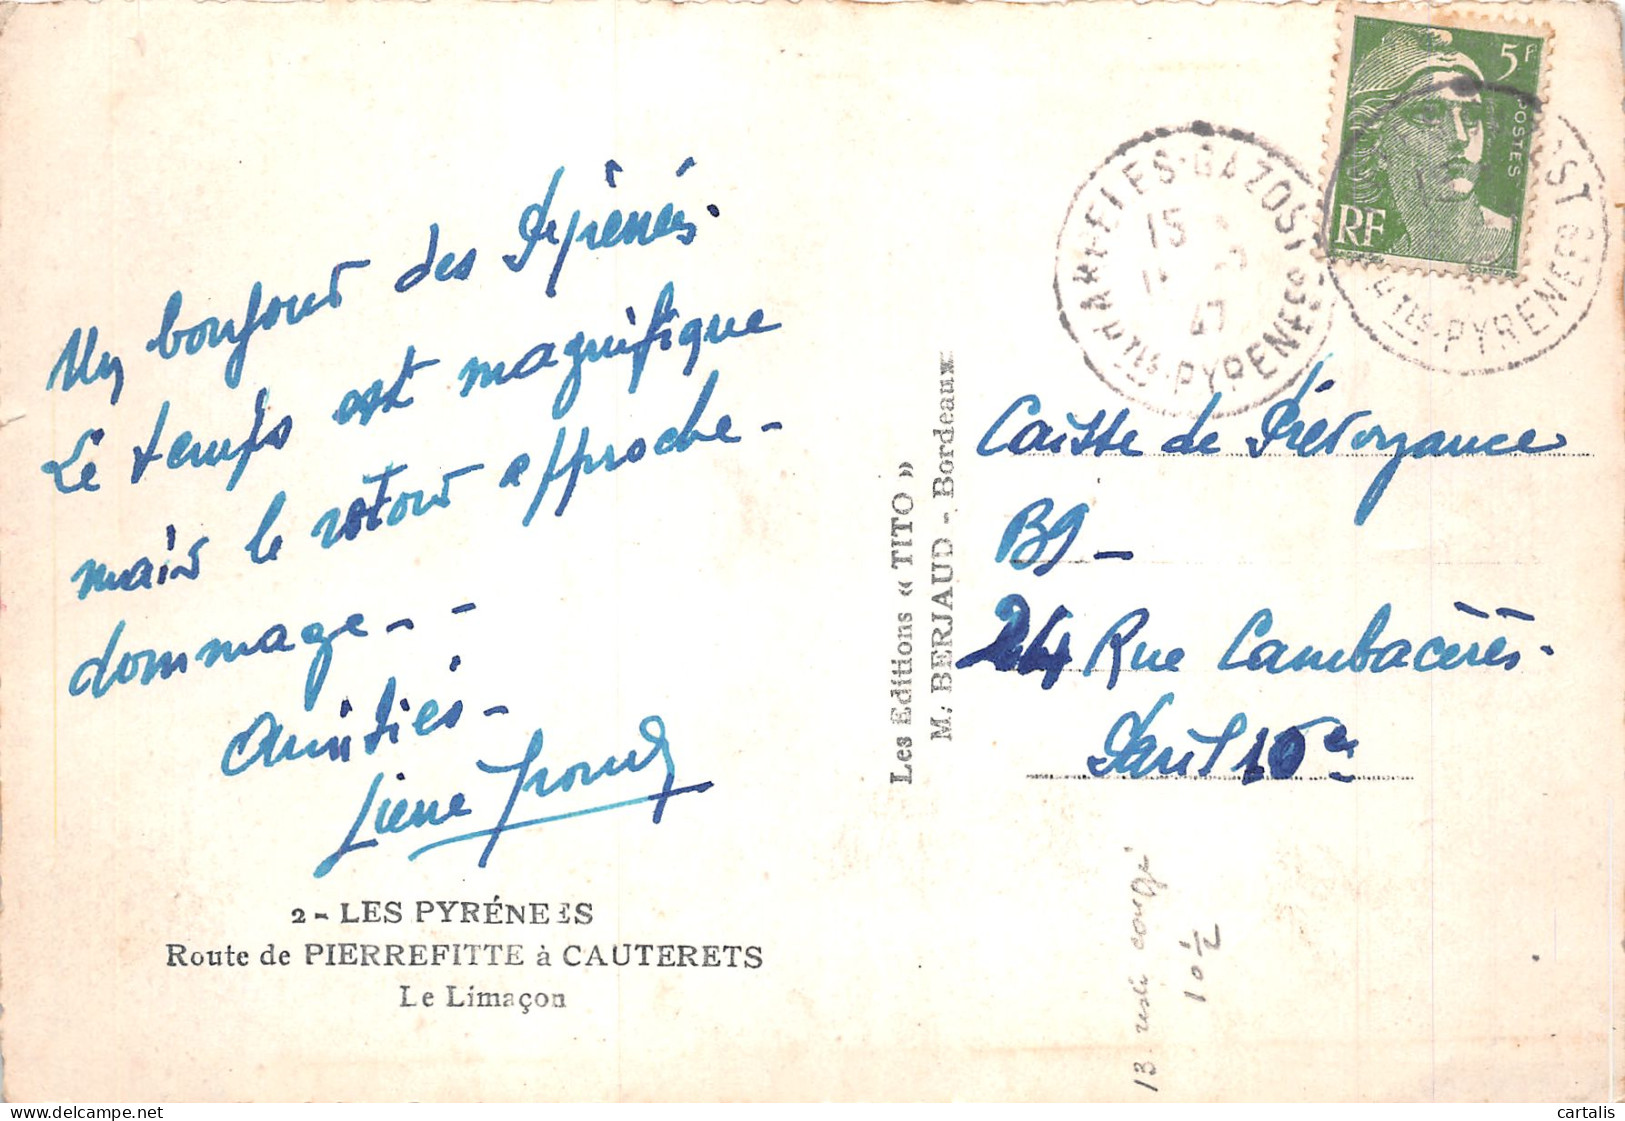 Un bonjour des Pyrénées.
Le temps est magnifique
mais le retour approche -
dommage - -
Amitiés -
2 - LES PYRÉNEES
Route de PIERREFITTE à CAUTERETS
Le Limaçon
Les Editions « TITO »
M. BERJAUD - Bordeaux
5F
POSTES
RF
ARGELES-GAZOST
15
47
HTES-PYRENEES
Caisse de Prévoyance
B9 -
24 Rue Cambacérès.
Paris
13 reste congé
10 1/2
cartalis